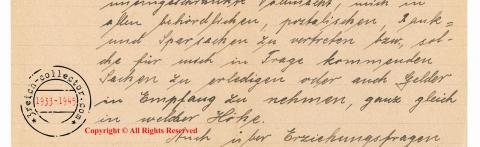 uneingeschränkte Vollmacht, mich in
allen behördlichen, postalischen, Bank-
und Sparsachen zu vertreten bzw. sol-
che für mich in Frage kommenden
Sachen zu erledigen oder auch Gelder
in Empfang zu nehmen, ganz gleich
in welcher Höhe.
Auch über Erziehungsfragen
reich-collector.com
1933-1945
Copyright © All Rights Reserved